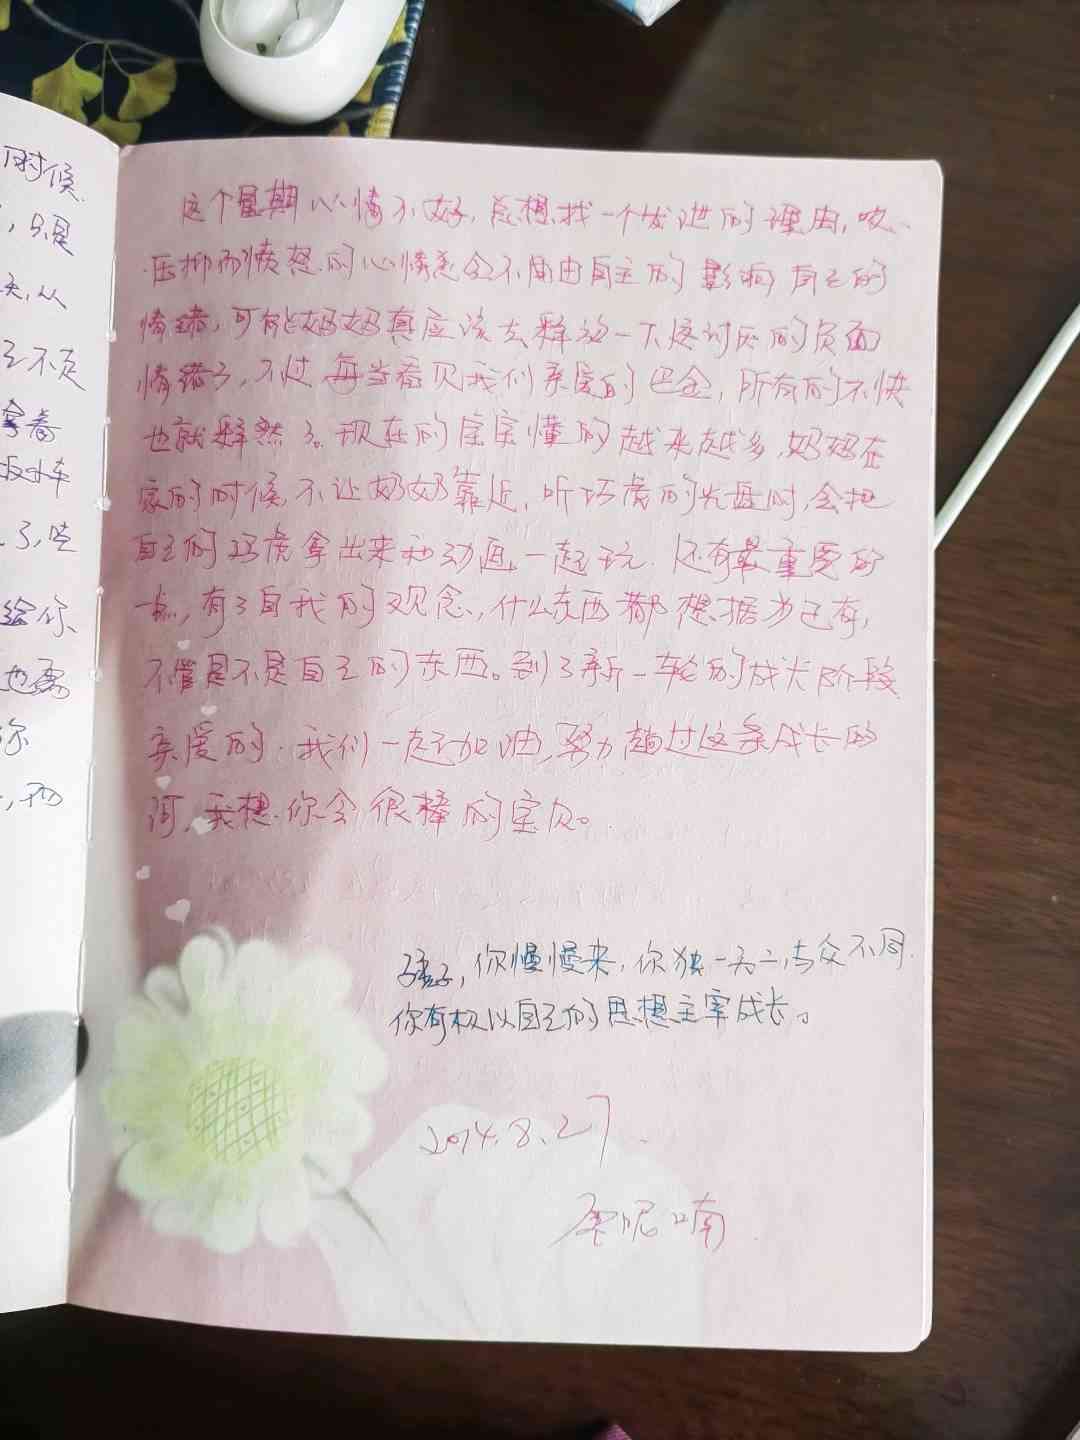 时候
，只是
从
己不足
拿着
了，哇
给你
也需
你
这个星期心情不好，总想找一个发泄的理由，唉
压抑而愤怒的心情总会不由自主的影响自己的
情绪，可能妈妈真应该去释放一下这讨厌的负面
情绪了，不过每当看见我们亲爱的巴金，所有的不快
也就释然了。现在的宝宝懂的越来越多，妈妈在
家的时候不让奶奶靠近，听巧虎的光盘时，会把
自己的巧虎拿出来和动画一起玩．还有最重要的
一点，有了自我的观念，什么东西都想据为己有，
不管是不是自己的东西。到了新一轮的成长阶段
亲爱的．我们一起加油，努力趟过这条成长的
河，我想你会很棒的宝贝。
孩子，你慢慢来，你独一无二，与众不同．
你有权以自己的思想主宰成长。
2014.8.27
呢喃